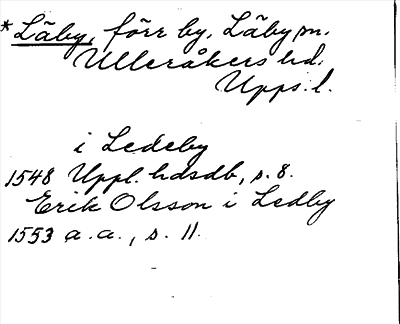 *Läby, förr by, Läby sn.
Ulleråkers hd.
Upps. l.
i Ledeby
1548 Uppl. hdsdb, s. 8.
Erik Olsson i Ledby
1553 a. a., s. 11.